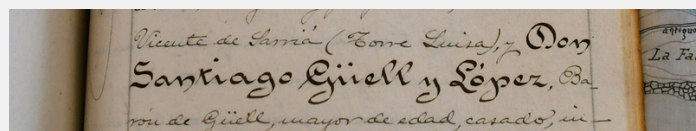 Vicente de Sarriá (Torre Luisa), y Don
Santiago Güell y López, Ba-
rón de Güell, mayor de edad, casado, in-
antiguo
La Fa